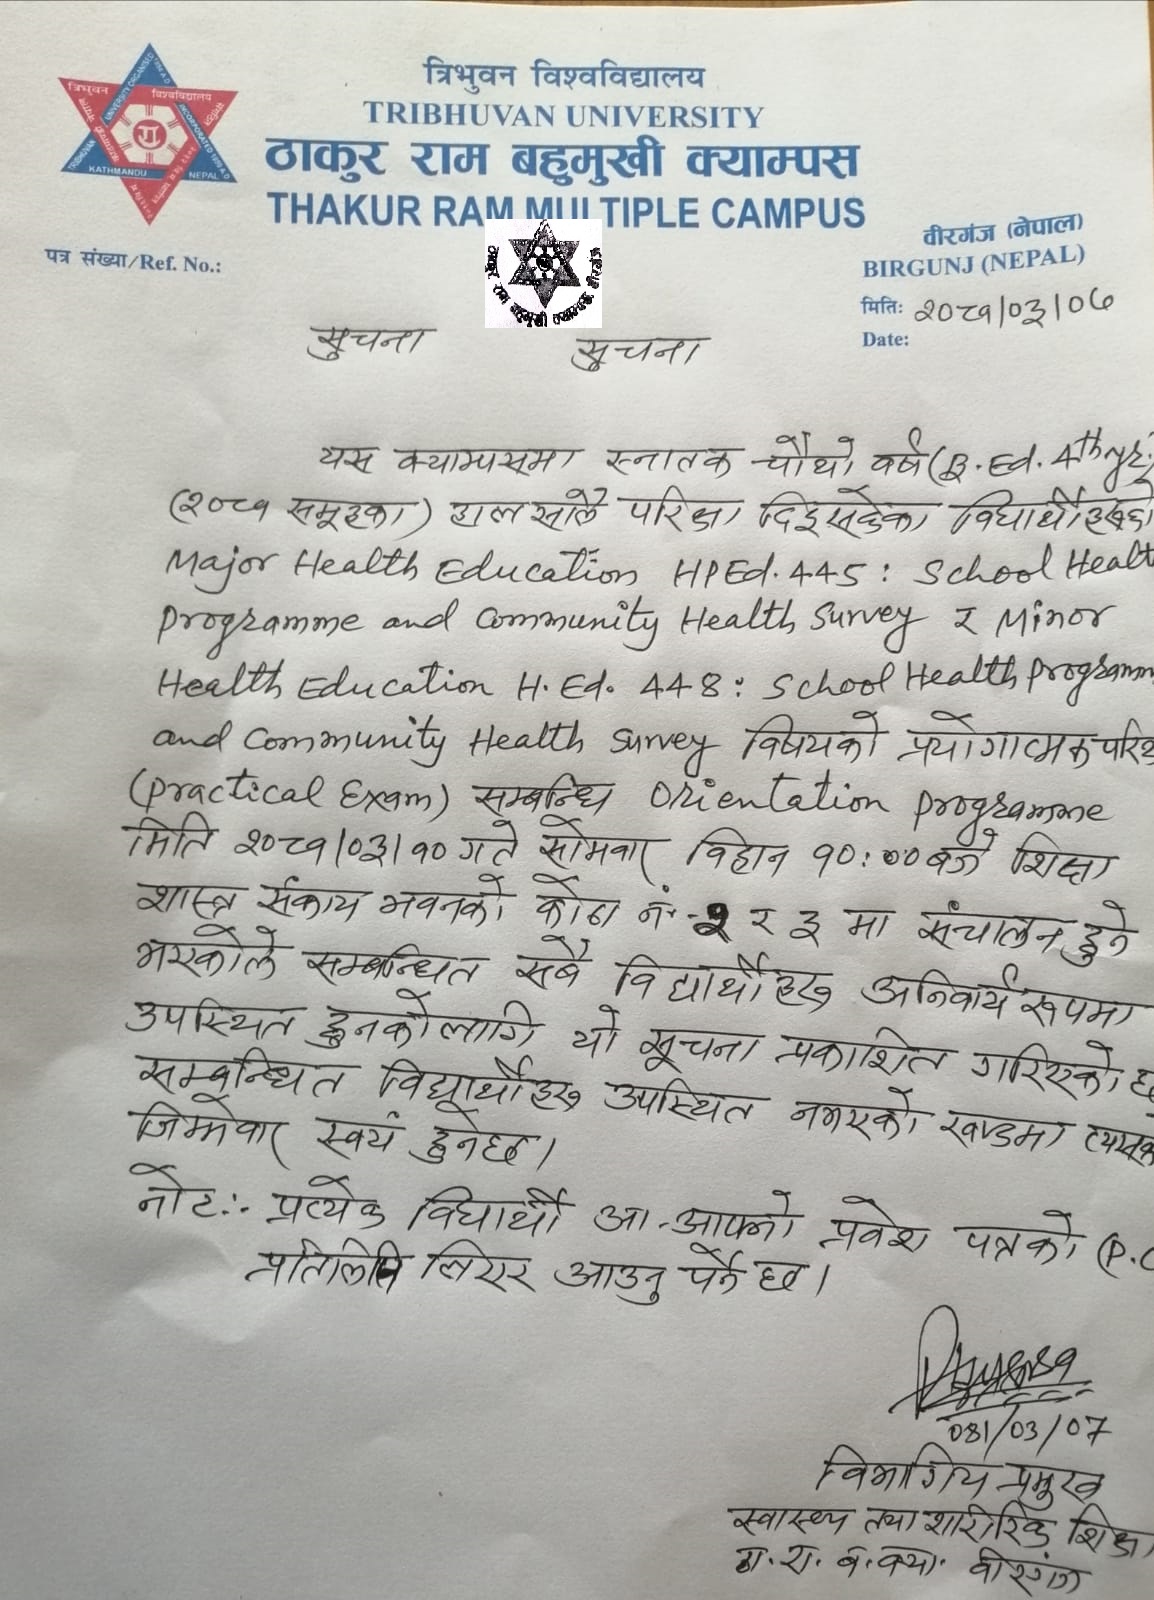 त्रिभुवन विश्वविद्यालय
TRIBHUVAN UNIVERSITY
ठाकुर राम बहुमुखी क्याम्पस
THAKUR RAM MULTIPLE CAMPUS
त्रिभुवन विश्वविद्यालय
KATHMANDU NEPAL
ठाकुर राम बहुमुखी क्याम्पस वीरगंज
वीरगंज (नेपाल)
पत्र संख्या/Ref. No.:
BIRGUNJ (NEPAL)
मिति: २०८१/०३/०७
Date:
सुचना सुचना
यस क्याम्पसमा स्नातक चौथो वर्ष (B.Ed. 4th yr.)
(२०८१ समूहका) हालसालै परिक्षा दिइसकेका विद्यार्थीहरूको
Major Health Education HPEd. 445: School Healt
Programme and Community Health Survey र Minor
Health Education H.Ed. 448: School Health Programm
and Community Health Survey विषयको प्रयोगात्मक
(Practical Exam) सम्बन्धि Orientation Programme
मिति २०८१/०३/१० गते सोमवार विहान १०:०० बजे शिक्षा
शास्त्र संकाय भवनको कोठा नं. २ र ३ मा संचालन हुने
भएकोले सम्बन्धित सबै विद्यार्थीहरू अनिवार्य रूपमा
उपस्थित हुनको लागि यो सूचना प्रकाशित गरिएको छ
सम्बन्धित विद्यार्थीहरू उपस्थित नभएको खण्डमा
जिम्मेवार स्वयं हुनेछ।
नोट:- प्रत्येक विद्यार्थी आ-आफ्नो प्रवेश पत्रको (P.C
प्रतिलिपि लिएर आउनु पर्ने छ।
081/03/07
विभागिय प्रमुख
स्वास्थ्य तथा शारीरिक शिक्षा
ठा.रा.ब.क्या. वीरगंज